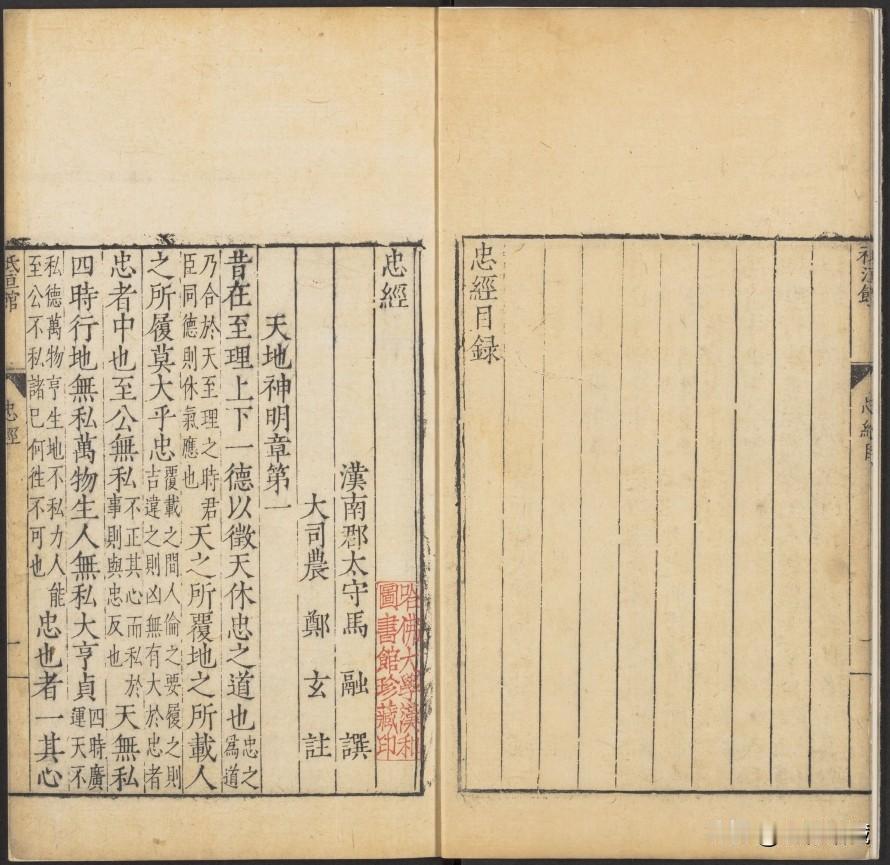 忠經目録
忠經
哈佛大學漢和
圖書館珍藏印
漢南郡太守馬融譔
大司農鄭玄註
天地神明章第一
昔在至理上下一德以徵天休忠之道也忠之爲道
乃合於天至理之時君臣同德則休氣應也天之所覆地之所載人
之所履莫大乎忠覆載之間人倫之要履之則吉違之則凶無有大於忠者
忠者中也至公無私不正其心而私於事則與忠反也天無私
四時行地無私萬物生人無私大亨貞四時廣運天不
私德萬物亨生地不私力人能至公不私諸已何徃不可也忠也者一其心
忠經
一